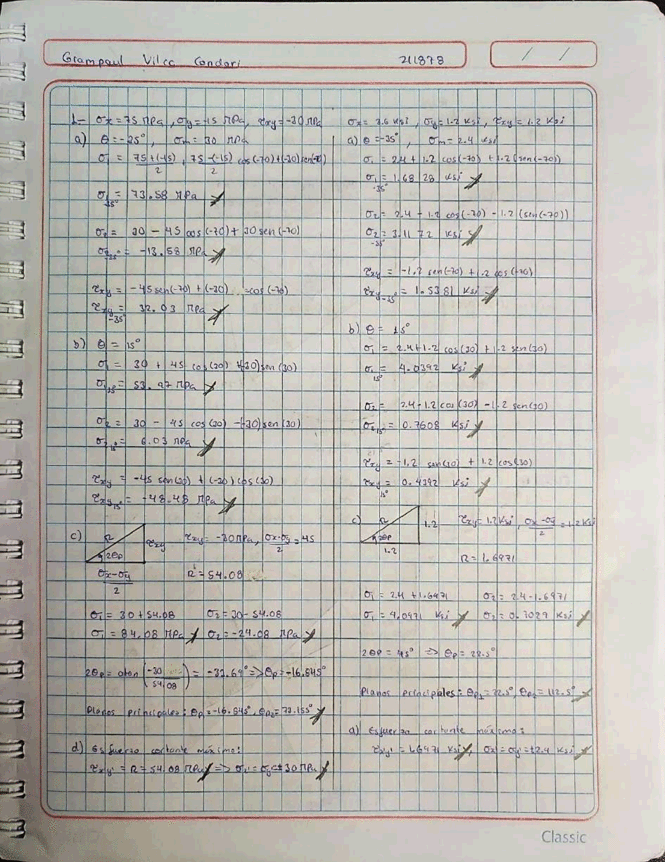 Giampaul Vilca Condori 211878
/ /
1.- σx = 75 MPa, σy = -15 MPa, τxy = -30 MPa
a) θ = -35°, σm = 30 MPa
σ1 = 75+(-15)/2 + 75-(-15)/2 cos(-70)+(-30)sen(-70)
σ1 -35° = 73.58 MPa
σ2 = 30 - 45 cos(-70) + 30 sen(-70)
σ2 -35° = -13.58 MPa
τxy = -45 sen(-70) + (-30) cos(-70)
τxy -35° = 32.03 MPa
b) θ = 15°
σ1 = 30 + 45 cos(30) + (-30) sen(30)
σ1 15° = 53.97 MPa
σ2 = 30 - 45 cos(30) - (-30) sen(30)
σ2 15° = 6.03 MPa
τxy = -45 sen(30) + (-30) cos(30)
τxy 15° = -48.48 MPa
c) R τxy 2θp τxy = -30 MPa, σx-σy/2 = 45
σx-σy/2 R = 54.08
σ1 = 30 + 54.08 σ2 = 30 - 54.08
σ1 = 84.08 MPa σ2 = -24.08 MPa
2θp = atan(-30/54.08) = -33.69° => θp = -16.845°
Planos principales: θp = -16.845°, θp2 = 73.155°
d) Esfuerzo cortante máximo:
τxy' = R = 54.08 MPa => σx' = σy' = 30 MPa
σx = 3.6 Ksi, σy = 1.2 Ksi, τxy = 1.2 Ksi
a) θ = -35°, σm = 2.4 Ksi
σ1 = 2.4 + 1.2 cos(-70) + 1.2 (sen(-70))
σ1 -35° = 1.6828 Ksi
σ2 = 2.4 - 1.2 cos(-70) - 1.2 (sen(-70))
σ2 -35° = 3.1172 Ksi
τxy = -1.2 sen(-70) + 1.2 cos(-70)
τxy -35° = 1.5381 Ksi
b) θ = 15°
σ1 = 2.4 + 1.2 cos(30) + 1.2 sen(30)
σ1 15° = 4.0392 Ksi
σ2 = 2.4 - 1.2 cos(30) - 1.2 sen(30)
σ2 15° = 0.7608 Ksi
τxy = -1.2 sen(30) + 1.2 cos(30)
τxy 15° = 0.4392 Ksi
c) R 1.2 2θp τxy = 1.2 Ksi, σx-σy/2 = 1.2 Ksi
1.2 R = 1.6971
σ1 = 2.4 + 1.6971 σ2 = 2.4 - 1.6971
σ1 = 4.0971 Ksi σ2 = 0.7029 Ksi
2θp = 45° => θp = 22.5°
Planos principales: θp1 = 22.5°, θp2 = 112.5°
d) Esfuerzo cortante máximo:
τxy' = 1.6971 Ksi, σx' = σy' = 2.4 Ksi
Classic